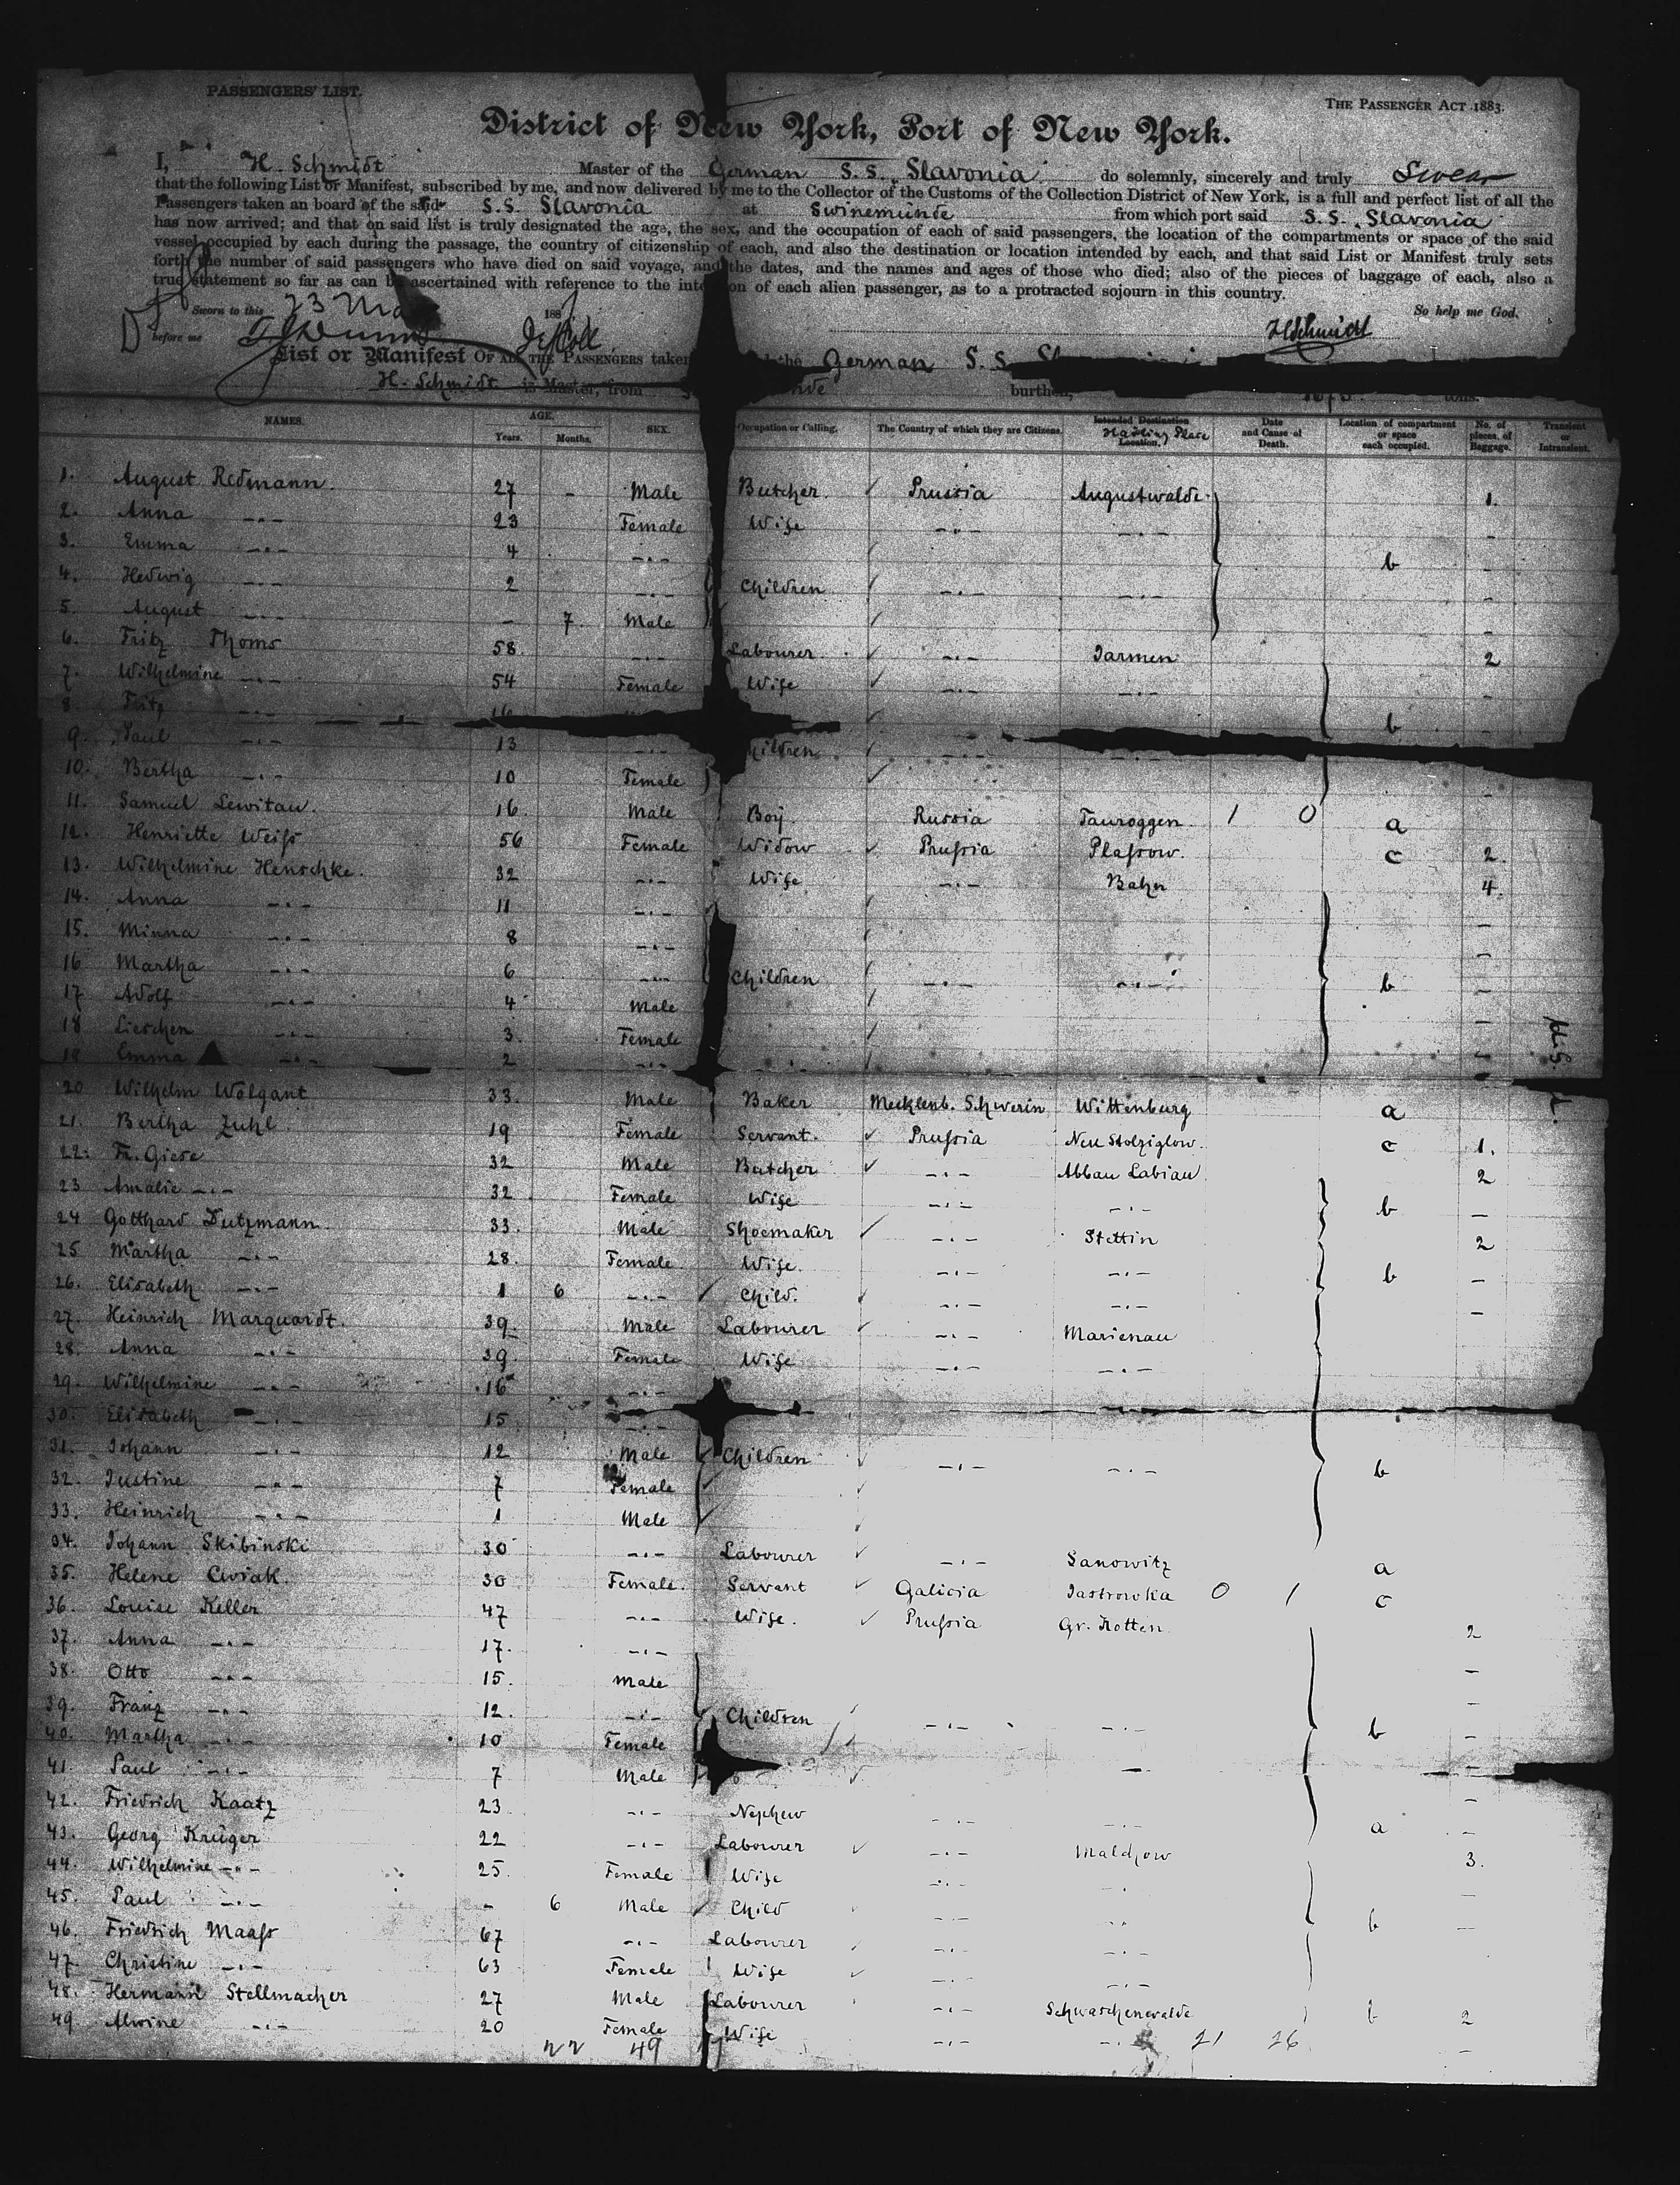 PASSENGERS' LIST.
THE PASSENGER ACT 1883.
District of New York, Port of New York.
I, H. Schmidt Master of the German S.S. Slavonia do solemnly, sincerely and truly Swear
that the following List or Manifest, subscribed by me, and now delivered by me to the Collector of the Customs of the Collection District of New York, is a full and perfect list of all the
Passengers taken an board of the said S.S. Slavonia at Swinemünde from which port said S.S. Slavonia
has now arrived; and that on said list is truly designated the age, the sex, and the occupation of each of said passengers, the location of the compartments or space of the said
vessel occupied by each during the passage, the country of citizenship of each, and also the destination or location intended by each, and that said List or Manifest truly sets
forth the number of said passengers who have died on said voyage, and the dates, and the names and ages of those who died; also of the pieces of baggage of each, also a
true statement so far as can be ascertained with reference to the of each alien passenger, as to a protracted sojourn in this country.
Sworn to this 23 188 So help me God.
before me HSchmidt
List or Manifest OF ALL THE PASSENGERS taken the German S.S.
H. Schmidt is Master, from burthen, tons.
NAMES. AGE. Years. Months. SEX. Occupation or Calling. The Country of which they are Citizens. Intended Destination Location. Date and Cause of Death. Location of compartment or space each occupied. No. of pieces of Baggage. Transient or Intransient.
1. August Redmann. 27 - Male Butcher. Prussia Augustwalde. 1.
2. Anna -"- 23 Female Wife -"- -"- -
3. Emma -"- 4 -"- b -
4. Hedwig -"- 2 -"- Children -"- -"- -
5. August -"- - 7. Male -
6. Fritz Thoms 58. -"- Labourer. -"- Jarmen 2
7. Wilhelmine -"- 54 Female Wife -"- -"- -
8. Fritz -"- 16 b
9. Paul -"- 13 -"- Children -"- -"-
10. Bertha -"- 10 Female -
11. Samuel Lewitau. 16. Male Boy. Russia Tauroggen 1 0 a
12. Henriette Weiss 56 Female Widow Prussia Plassow. c 2.
13. Wilhelmine Henschke. 32 -"- Wife -"- Bahn 4.
14. Anna -"- 11 -"- -
15. Minna -"- 8 -"- -
16 Martha -"- 6 -"- Children -"- -"- b -
17 Adolf -"- 4 Male -
18 Lieschen -"- 3. Female -
19 Emma -"- 2 -"-
20 Wilhelm Wolgant 33. Male Baker Mecklenb. Schwerin Wittenburg a
21. Bertha Zuhl 19 Female Servant. Prussia Neu Stolziglow. c 1.
22. Fr. Giese 32 Male Butcher -"- Abbau Labiau 2
23 Amalie -"- 32 Female Wife -"- -"- b -
24 Gotthard Dutzmann. 33. Male Shoemaker -"- Stettin 2
25 Martha -"- 28. Female Wife. -"- -"- b -
26. Elisabeth -"- 1 6 -"- Child. -"- -"- -
27. Heinrich Marquardt. 39. Male Labourer -"- Marienau
28. Anna -"- 39. Female Wife -"- -"-
29. Wilhelmine -"- 16 -"-
30. Elisabeth -"- 15. -"-
31. Johann -"- 12 Male Children -"- -"- b
32. Justine -"- 7 Female
33. Heinrich -"- 1 Male
34. Johann Skibinski 30 -"- Labourer -"- Sanowitz a
35. Helene Cwiak. 30 Female. Servant Galicia Jastrowka 0 1 c
36. Louise Keller 47 -"- Wife. Prussia Gr. Kotten 2
37. Anna -"- 17. -"- -
38. Otto -"- 15. Male -
39. Franz -"- 12. -"- Children -"- -"- b
40. Martha -"- 10 Female -
41. Paul -"- 7 Male -
42. Friedrich Kaatz 23 -"- Nephew -"- -"- a -
43. Georg Krüger 22 -"- Labourer -"- Malchow 3.
44. Wilhelmine -"- 25. Female Wife -"- -
45. Paul -"- - 6 Male Child -"- -"- b -
46. Friedrich Maass 67 -"- Labourer -"- -"-
47. Christine -"- 63 Female Wife -"- -"-
48. Hermann Stellmacher 27 Male Labourer -"- Schwaschenwalde b 2
49 Alwine -"- 20 Female Wife -"- -"- -
22 49 21 26